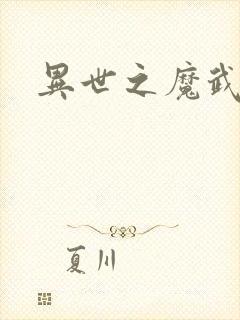 異世之魔武
夏川